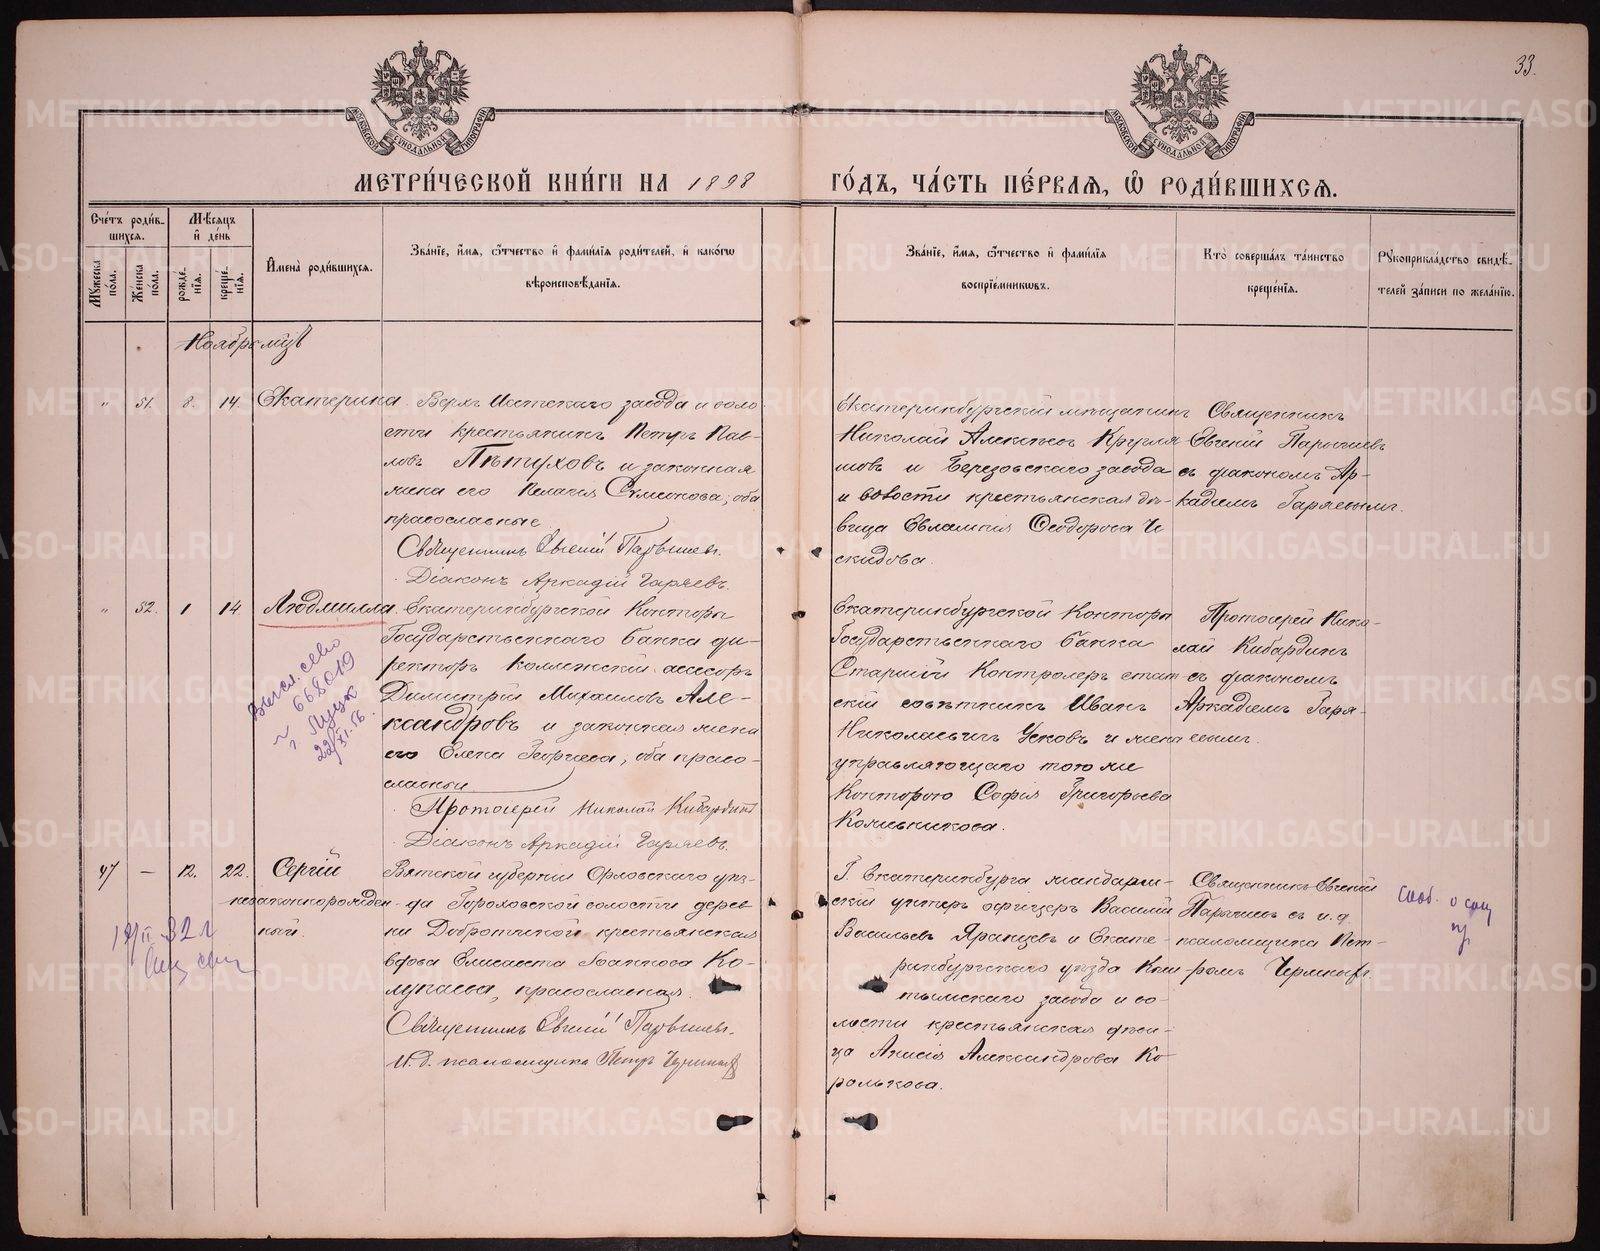 33.
МЕТРИ́ЧЕСКОЙ КНИ́ГИ НА 1898 ГО́ДЪ, ЧА́СТЬ ПЕ́РВАѦ, Ѽ РОДИ́ВШИХСѦ.
Сче́тъ роди́вшихсѧ.
Мꙋ́жеска по́ла.
Же́нска по́ла.
Мѣ́сѧцъ и҆ де́нь
рожде́нїѧ.
креще́нїѧ.
И҆мена̀ роди́вшихсѧ.
Зва́нїе, и҆́мѧ, ѻ҆́тчество и҆ фами́лїѧ роди́телей, и҆ како́гѡ
вѣроисповѣ́данїѧ.
Зва́нїе, и҆́мѧ, ѻ҆́тчество и҆ фами́лїѧ
воспрїе́мникѡвъ.
Кто̀ соверша́лъ та́инство
креще́нїѧ.
Рꙋкоприкла́дство свидѣ́-
телей за́писи по жела́нїю.
Ноябрь мцъ
" 51. 8. 14. Екатерина.
Верх Исетскаго завода и воло
сти крестьянинъ Петръ Пав-
ловъ Пѣтуховъ и законная
жена его Пелагія Сумеонова; оба
православные
Священникъ Евгеній Парышевъ.
Діаконъ Аркадій Гаряевъ.
Екатеринбургскій мѣщанинъ
Николай Алексѣевъ Кругля
шовъ и Березовскаго завода
и волости крестьянская дѣ-
вица Евлампія Ѳеодорова Че
скидова.
Священникъ
Евгеній Парышевъ
съ діакономъ Ар-
кадіемъ Гаряевымъ.
" 52. 1 14 Людмилла
Екатеринбургской Конторы
Государственнаго банка ди-
ректоръ коллежскій ассесоръ
Димитрій Михаиловъ Але-
ксандровъ и законная жена
его Елена Георгіева, оба право-
славные
Протоіерей Николай Кибардинъ
Діаконъ Аркадій Гаряевъ.
668019
г. Луцк
22/XI.56.
Екатеринбургской Конторы
Государственнаго банка
Старшій Контролеръ стат-
скій совѣтникъ Иванъ
Николаевичъ Усковъ и жена
управляющаго тою же
Конторою Софія Григорьева
Протоіерей Нико-
лай Кибардинъ
съ діакономъ
Аркадіемъ Гаря-
евымъ.
47 — 12. 22. Сергій
незаконнорожден
ный.
Вятской губерніи Орловскаго уѣз-
да Гороховской волости дерев
ни крестьянская
вдова Елисавета Іоаннова Ко-
лупаева, православная.
Священникъ Евгеній Парышевъ.
И. д. псаломщика Петръ
Г. Екатеринбурга жандарм-
скій унтеръ офицеръ Василій
Васильевъ Яранцевъ и Екате-
ринбургскаго уѣзда Каш
тымскаго завода и во-
лости крестьянская дѣви-
ца Анисія Александрова Ко
ролькова.
Священникъ Евгеній
Парышевъ съ и. д.
псаломщика Пет-
ромъ
Сооб. о соц
пр.
METRIKI.GASO-URAL.RU